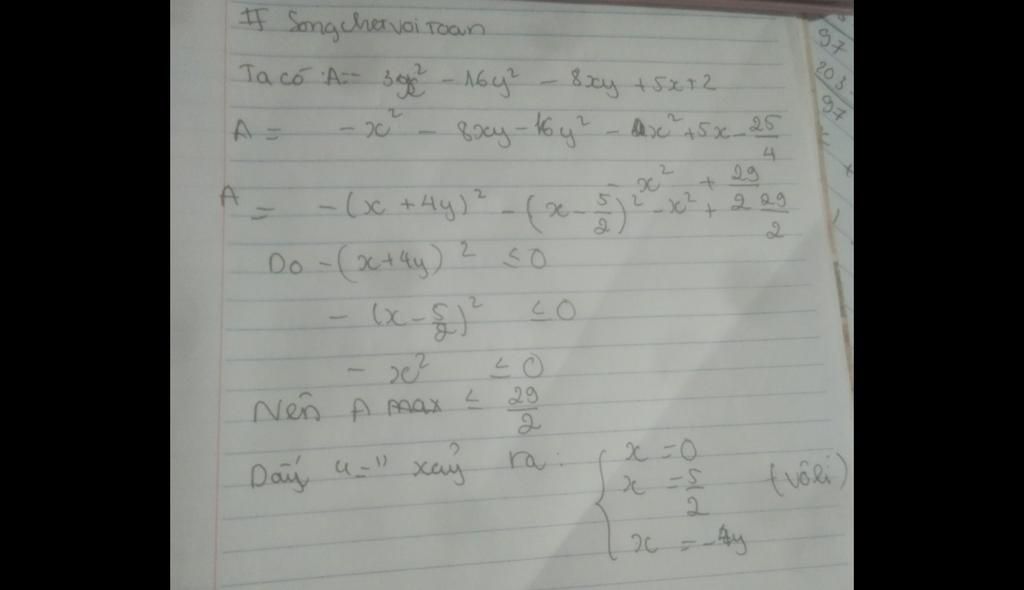 # Songchervoitoan
Ta có A = - 3x² - 16y² - 8xy + 5x + 2
A = - x² - 8xy - 16y² - x² + 5x - 25/4
- x² + 29/2
A = - (x + 4y)² - (x - 5/2)² - x² + 29/2
Do - (x + 4y)² ≤ 0
- (x - 5/2)² ≤ 0
- x² ≤ 0
Nên A max ≤ 29/2
Dấu "=" xảy ra: { x = 0
x = 5/2 (Vôlí)
x = -4y
97
203
97